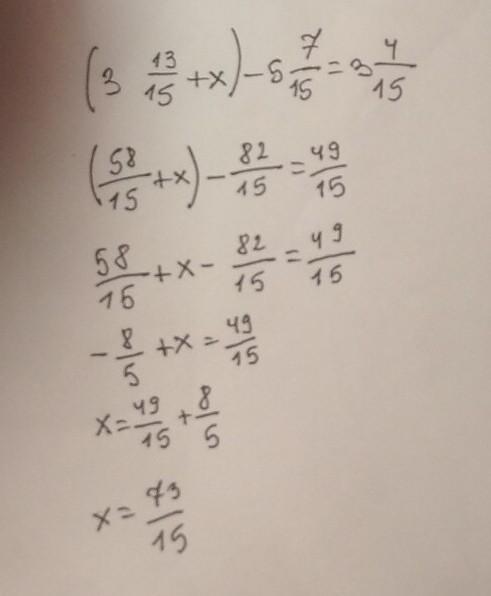 (3 13/15 + x) - 5 7/15 = 3 4/15
(58/15 + x) - 82/15 = 49/15
58/15 + x - 82/15 = 49/15
- 8/5 + x = 49/15
x = 49/15 + 8/5
x = 73/15